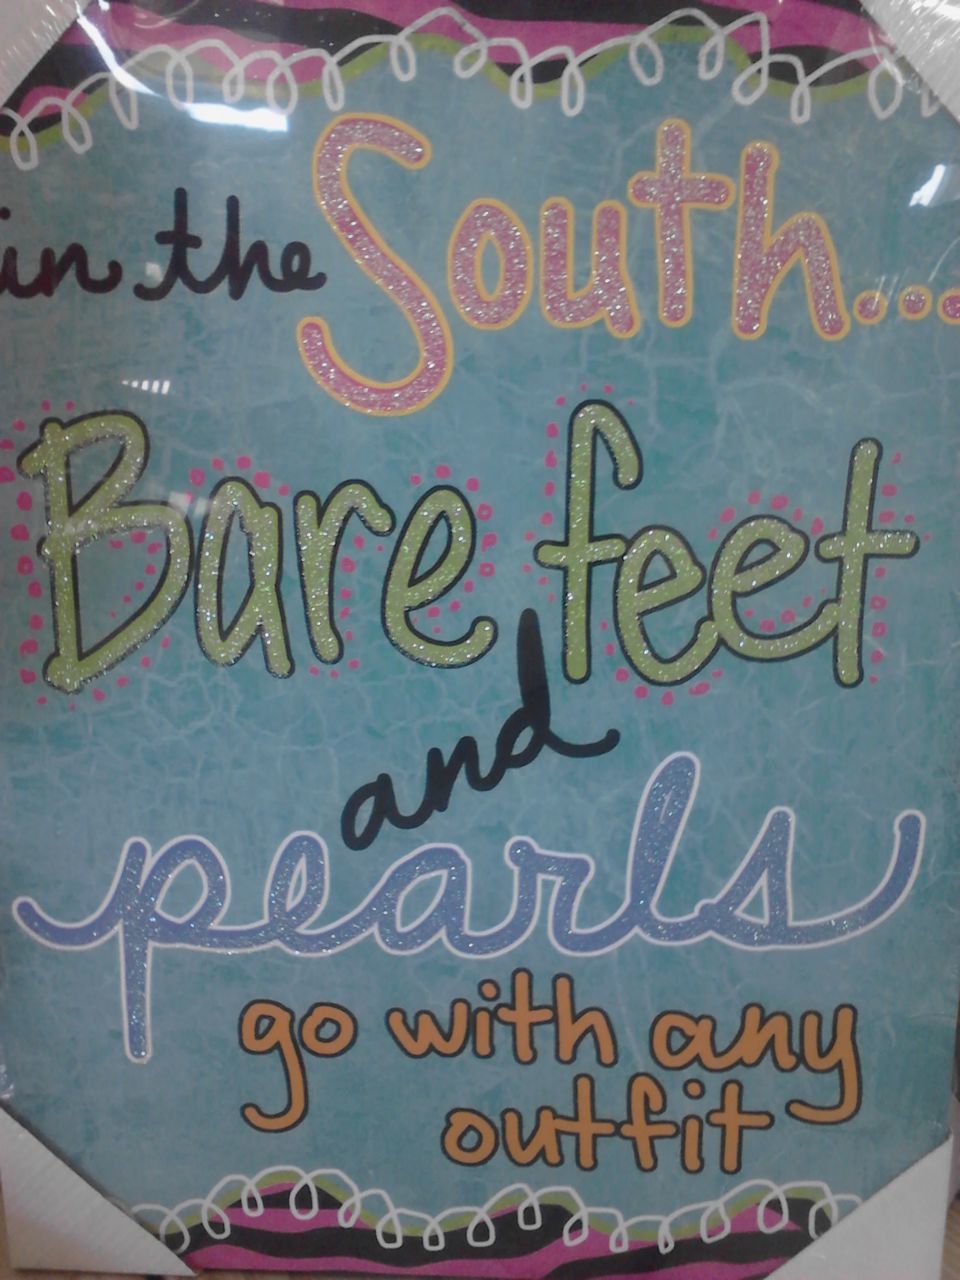 in the South...
Bare feet
and
pearls
go with any
outfit